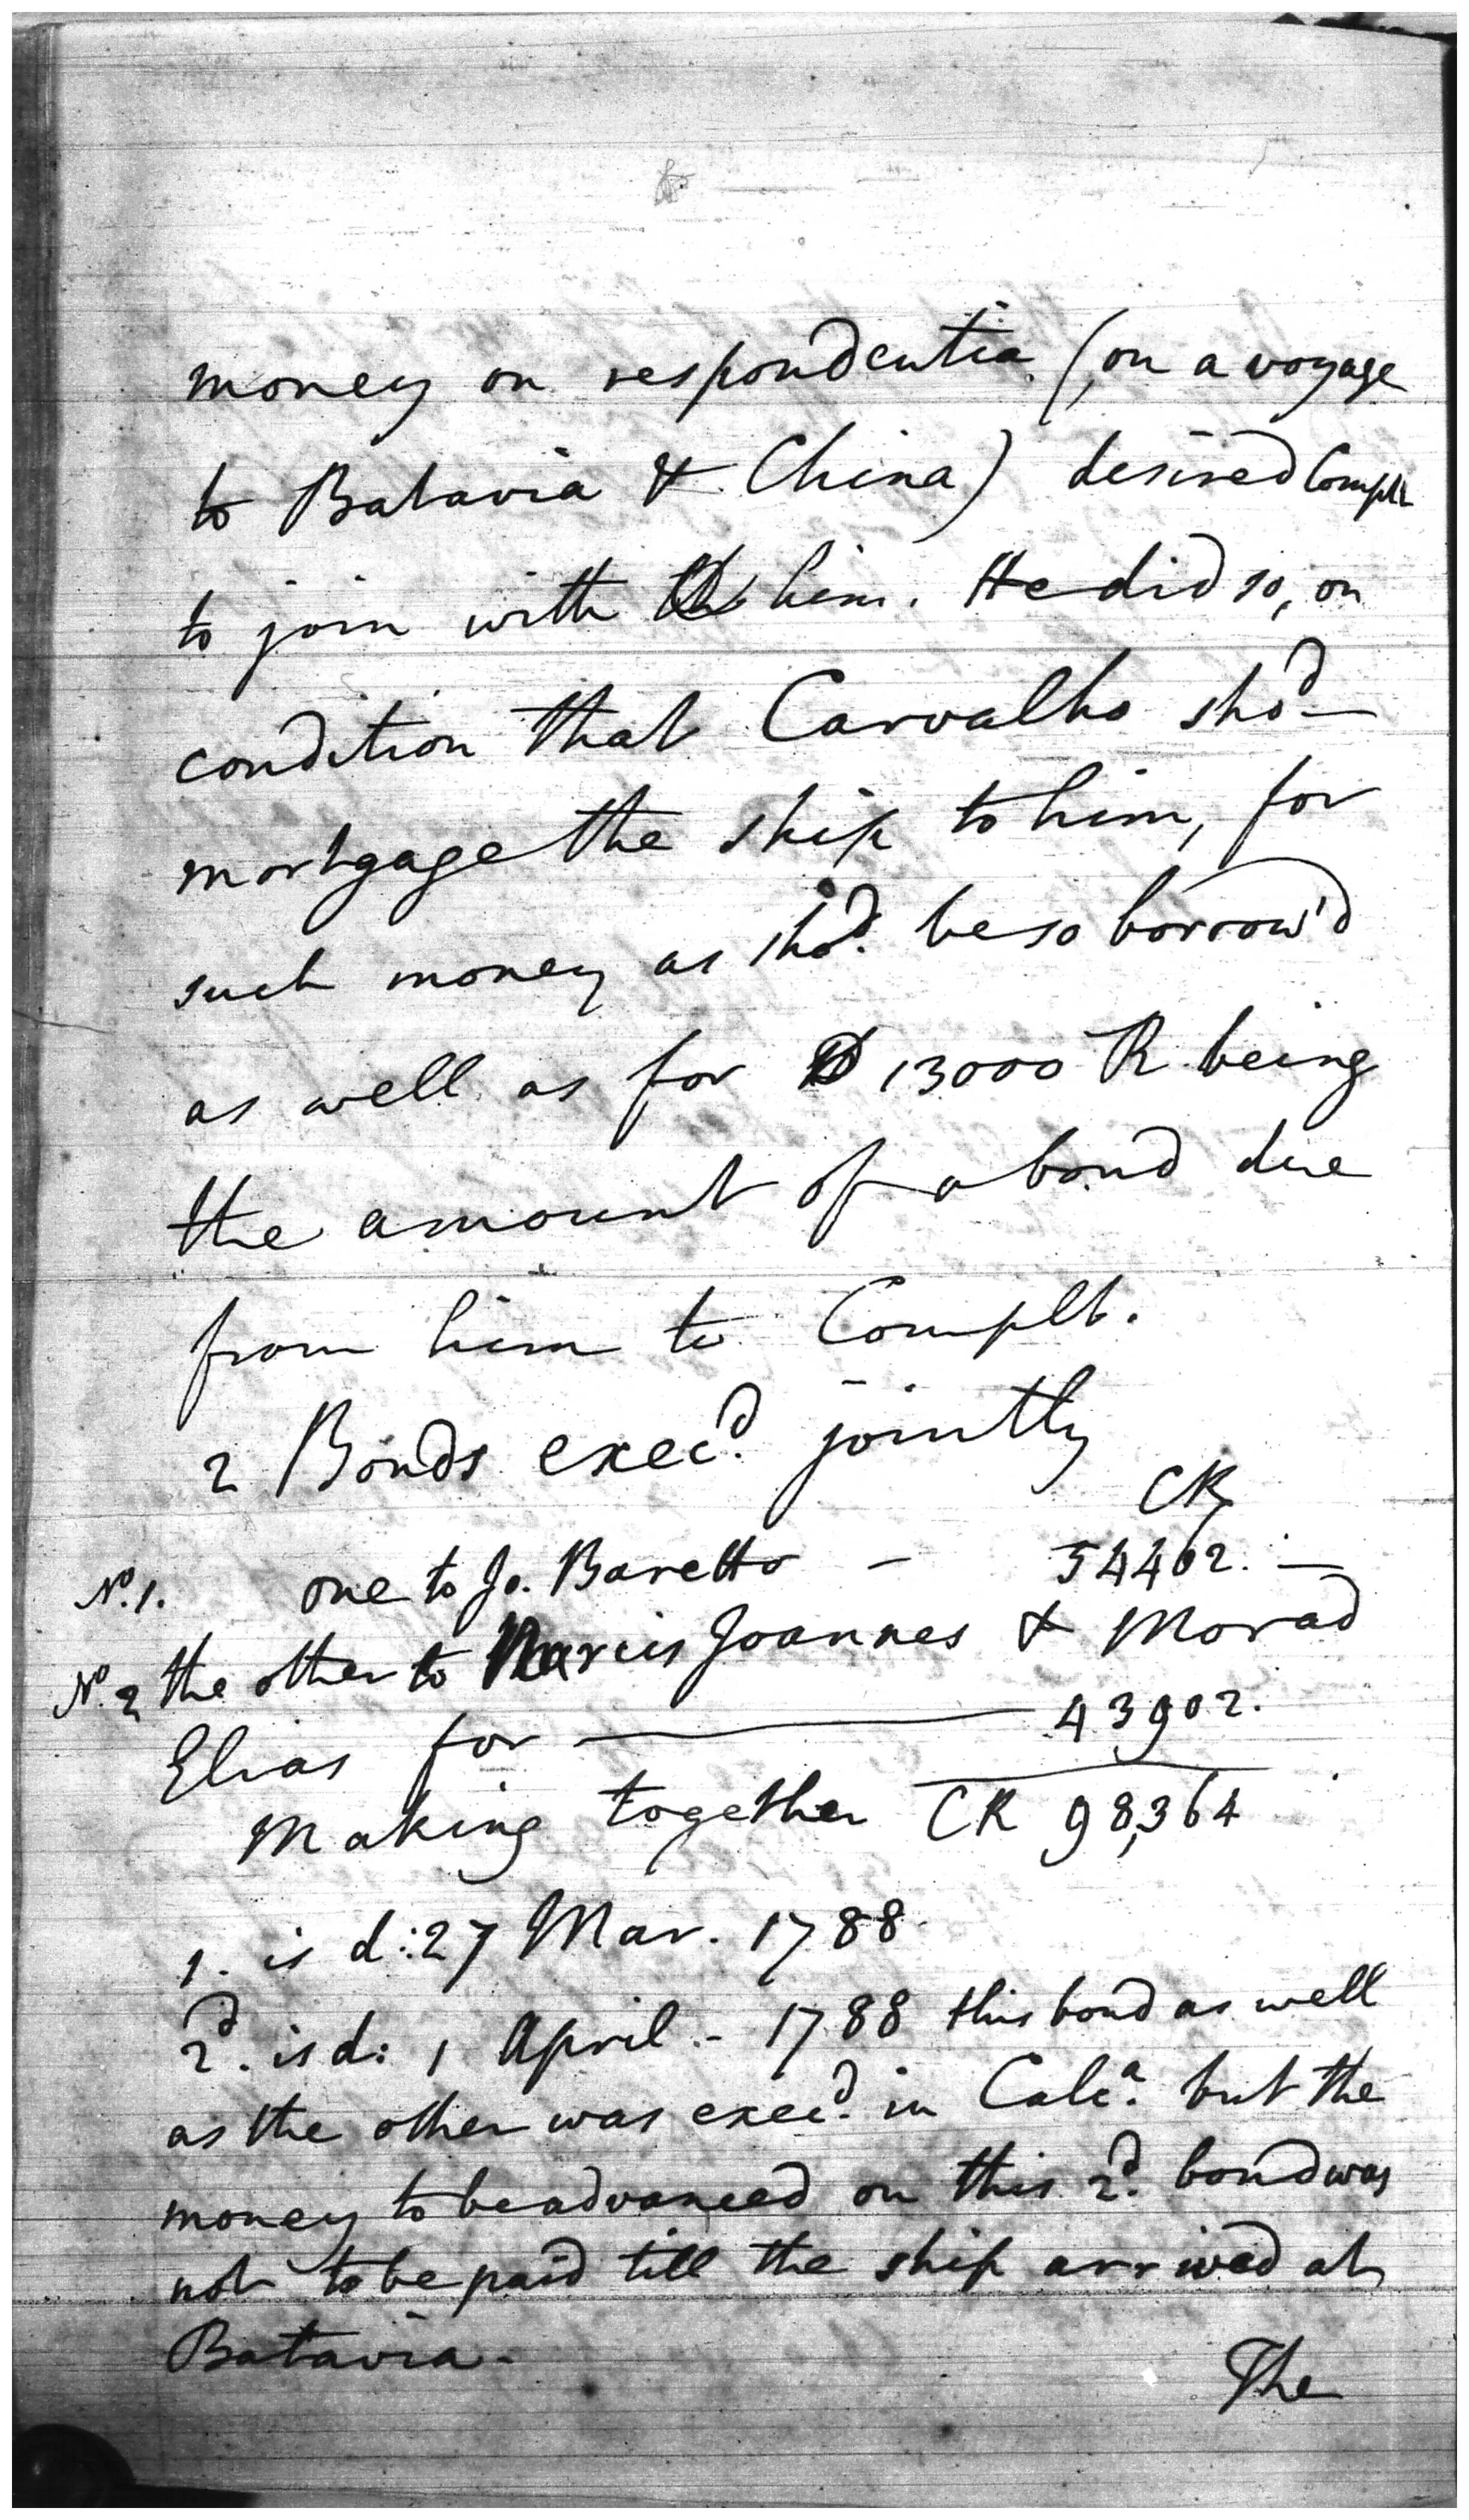 money on respondentia (on a voyage
to Batavia & China) desired Complt
to join with him. He did so, on
condition that Carvalho shod
mortgage the ship to him, for
such money as shod. be so borrow'd
as well as for 13000 R. being
the amount of a bond due
from him to Complt.
2 Bonds execd. jointly
CR
No. 1. one to Jo. Baretto - 54402. —
No. 2 the other to Narcis Joannes & Morad
Elias for — 43902.
Making together CR 98,364
1. is d: 27 Mar. 1788.
2d. is d: 1 April - 1788 this bond as well
as the other was execd. in Calca. but the
money to be advanced on this 2d. bond was
not to be paid till the ship arrived at
Batavia.
The